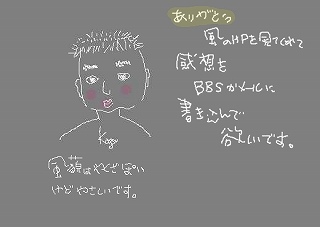 ありがとう
風のHPを見てくれて
感想を
BBSかメールに
書き込んで
欲しいです。
Kaze
風貌はやくざぽい
けどやさしいです。